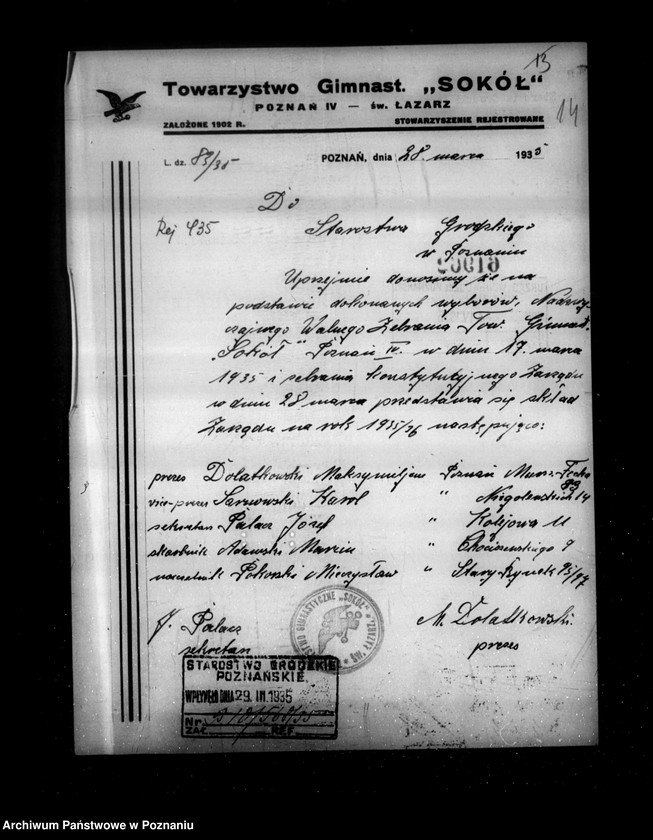 13
14
Towarzystwo Gimnast. „SOKÓŁ"
POZNAŃ IV — św. ŁAZARZ
ZAŁOŻONE 1902 R. STOWARZYSZENIE REJESTROWANE
L. dz. 83/35 POZNAŃ, dnia 28. marca 1935
Do
Rej 435 Starostwa Grodzkiego
w Poznaniu
Uprzejmie donosimy że na
podstawie dokonanych wyborów, Nadzwy
czajnego Walnego Zebrania Tow. Gimnast.
„Sokół" Poznań IV. w dniu 17. marca
1935 i zebrania Konstytucyjnego Zarządu
w dniu 28 marca przedstawia się skład
Zarządu na rok 1935/36 następująco:
prezes Dolatkowski Maksymiljan Poznań Marsz. Focha
83
vice-prezes Karol " 14
sekretarz Palacz Józef " Kolejowa 11
skarbnik Adamski Marcin " Chociszewskiego 9
naczelnik Mieczysław " Stary-Rynek 95/97
J. Palacz M. Dolatkowski
sekretarz prezes
GIMNASTYCZNE „SOKÓŁ" ŚW. ŁAZARZ
STAROSTWO GRODZKIE
POZNAŃSKIE
WPŁYNĘŁO DNIA 29. III. 1935
Nr.
ZAŁ. REF.
Archiwum Państwowe w Poznaniu